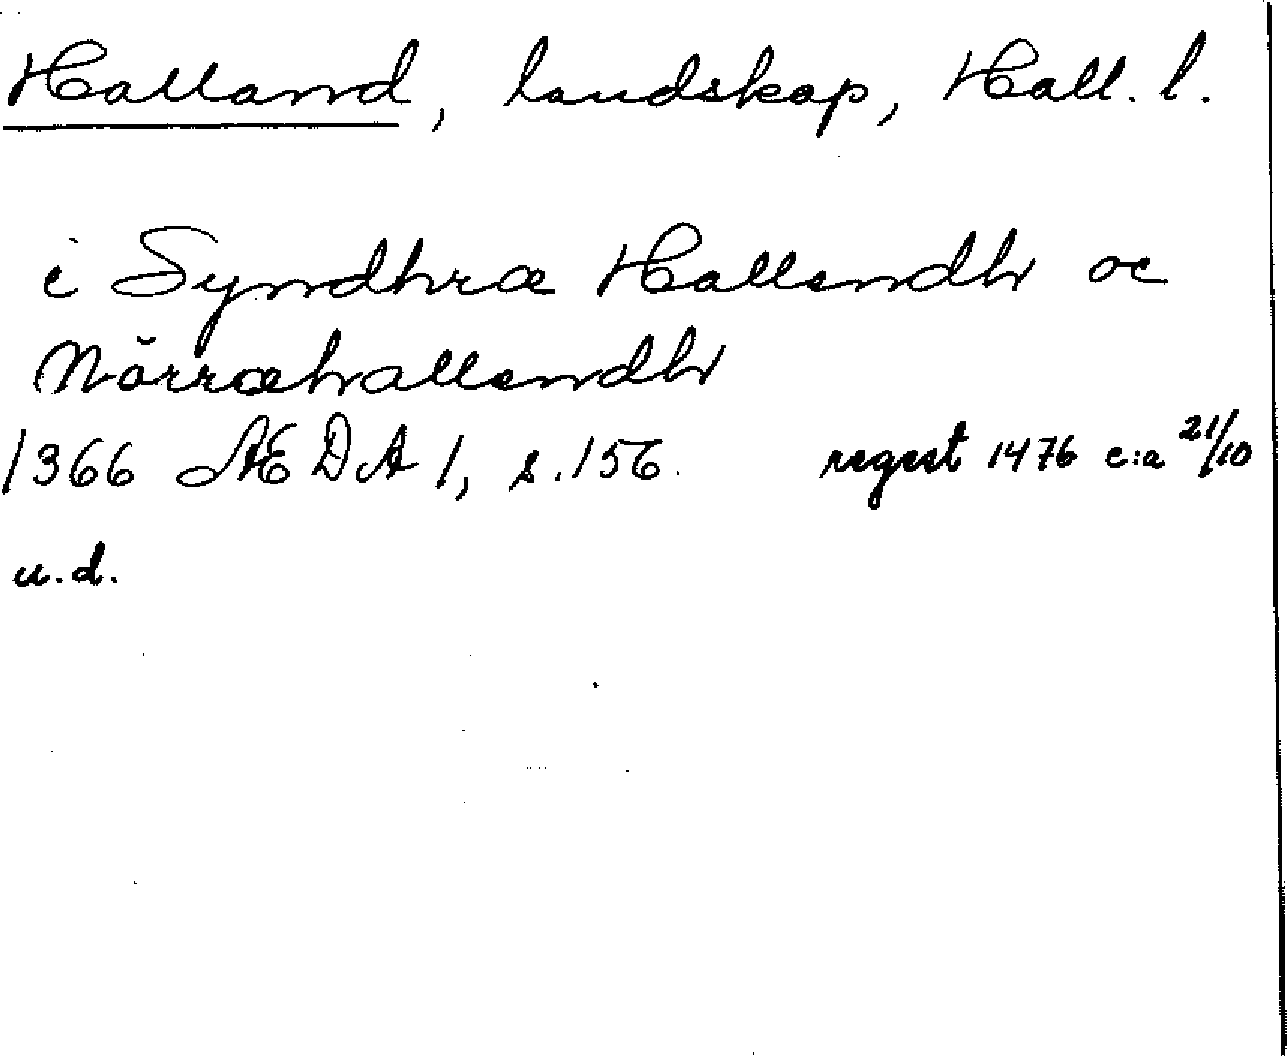 Halland, landskap, Hall. l.
i Syndhræ Hallendh oc
Nörræhallendh
1366 ÆDA 1, s.156. regest 1476 c:a 21/10
u.d.